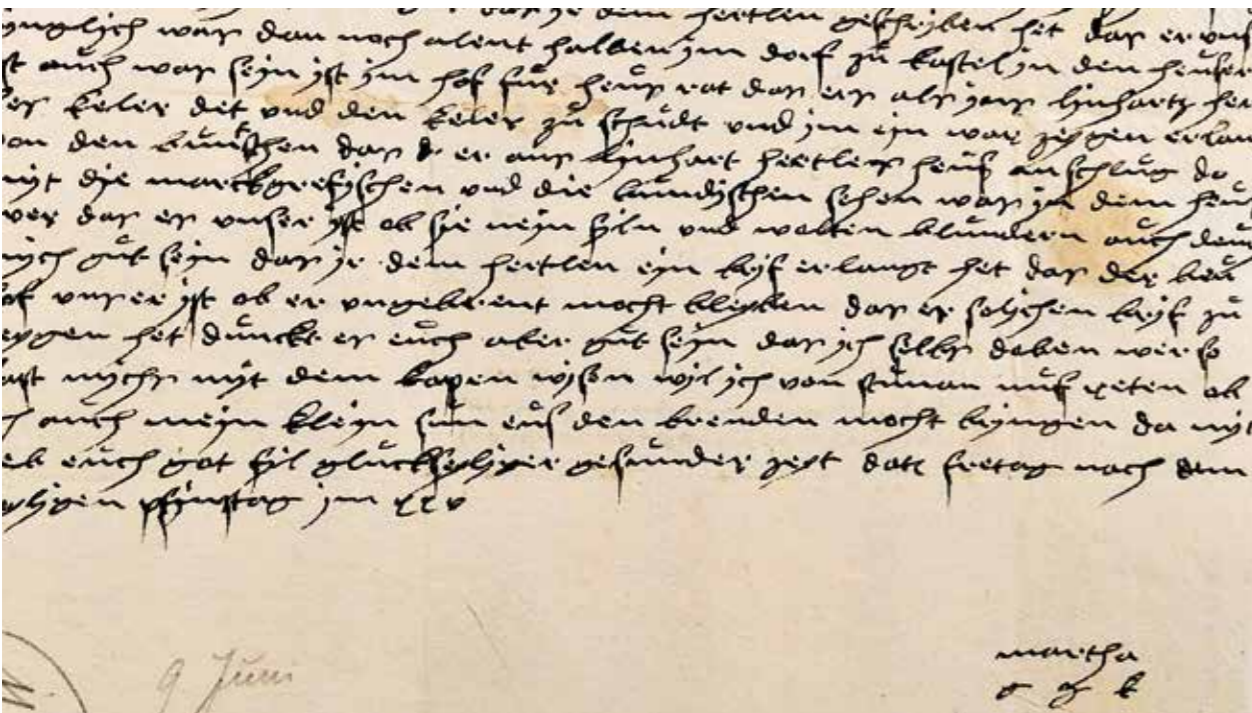 das jr dem hertlen geschryben het das er vns
ynglych was dan noch alent halben jm dorf zu kastel jn den heusern
st auch was sein yst jm hof fur heus rat das ers als jns lynharts her
er keler det vnd den keler zu schudt vnd jm ein war zeygen erlan
on den das er ans lynhart hertlers heus anschlug do
myt dye marckgrefyschen vnd die bundyschen sehen was jn dem heus
wer das es vnser yst ob sie nein filn vnd wolten blundern auch deucht
mych gut sein das jr dem hertlen ein bryf erlangt het das der beu
of vnser yst ob er vngebrent mocht bleyben das er solychen bryf zu
eygen het dunckt es euch aber gut sein das ich selbs doben wer so
ast mychs myt dem boten wysen wil ich von stunan nuf reten ob
h auch mein kleyn sun aus den brenden mocht bryngen da myt
eb euch got fyl gluckseylyger gesunder zeyt datz fretag nach dem
eylygen pfinstag jm xxv
9. Juni
martha